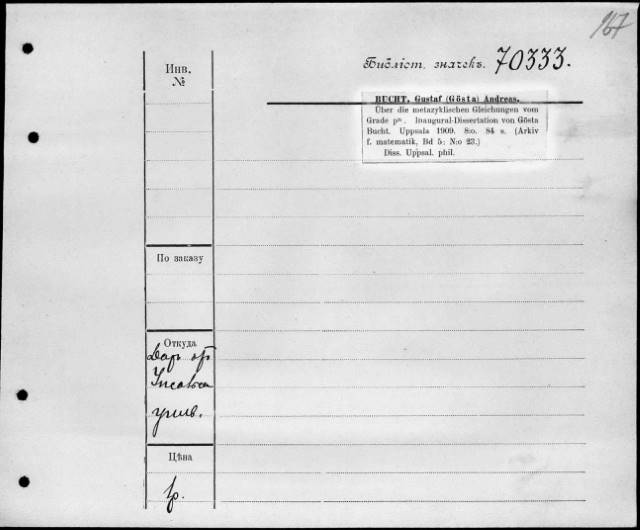 167
Библіот. значекъ. 70333.
Инв.
№
BUCHT, Gustaf (Gösta) Andreas.
Über die metazyklischen Gleichungen vom
Grade pⁿ. Inaugural-Dissertation von Gösta
Bucht. Uppsala 1909. 8:o. 84 s. (Arkiv
f. matematik, Bd 5: N:o 23.)
Diss. Uppsal. phil.
По заказу
Откуда
Даръ отъ
унив.
Цѣна